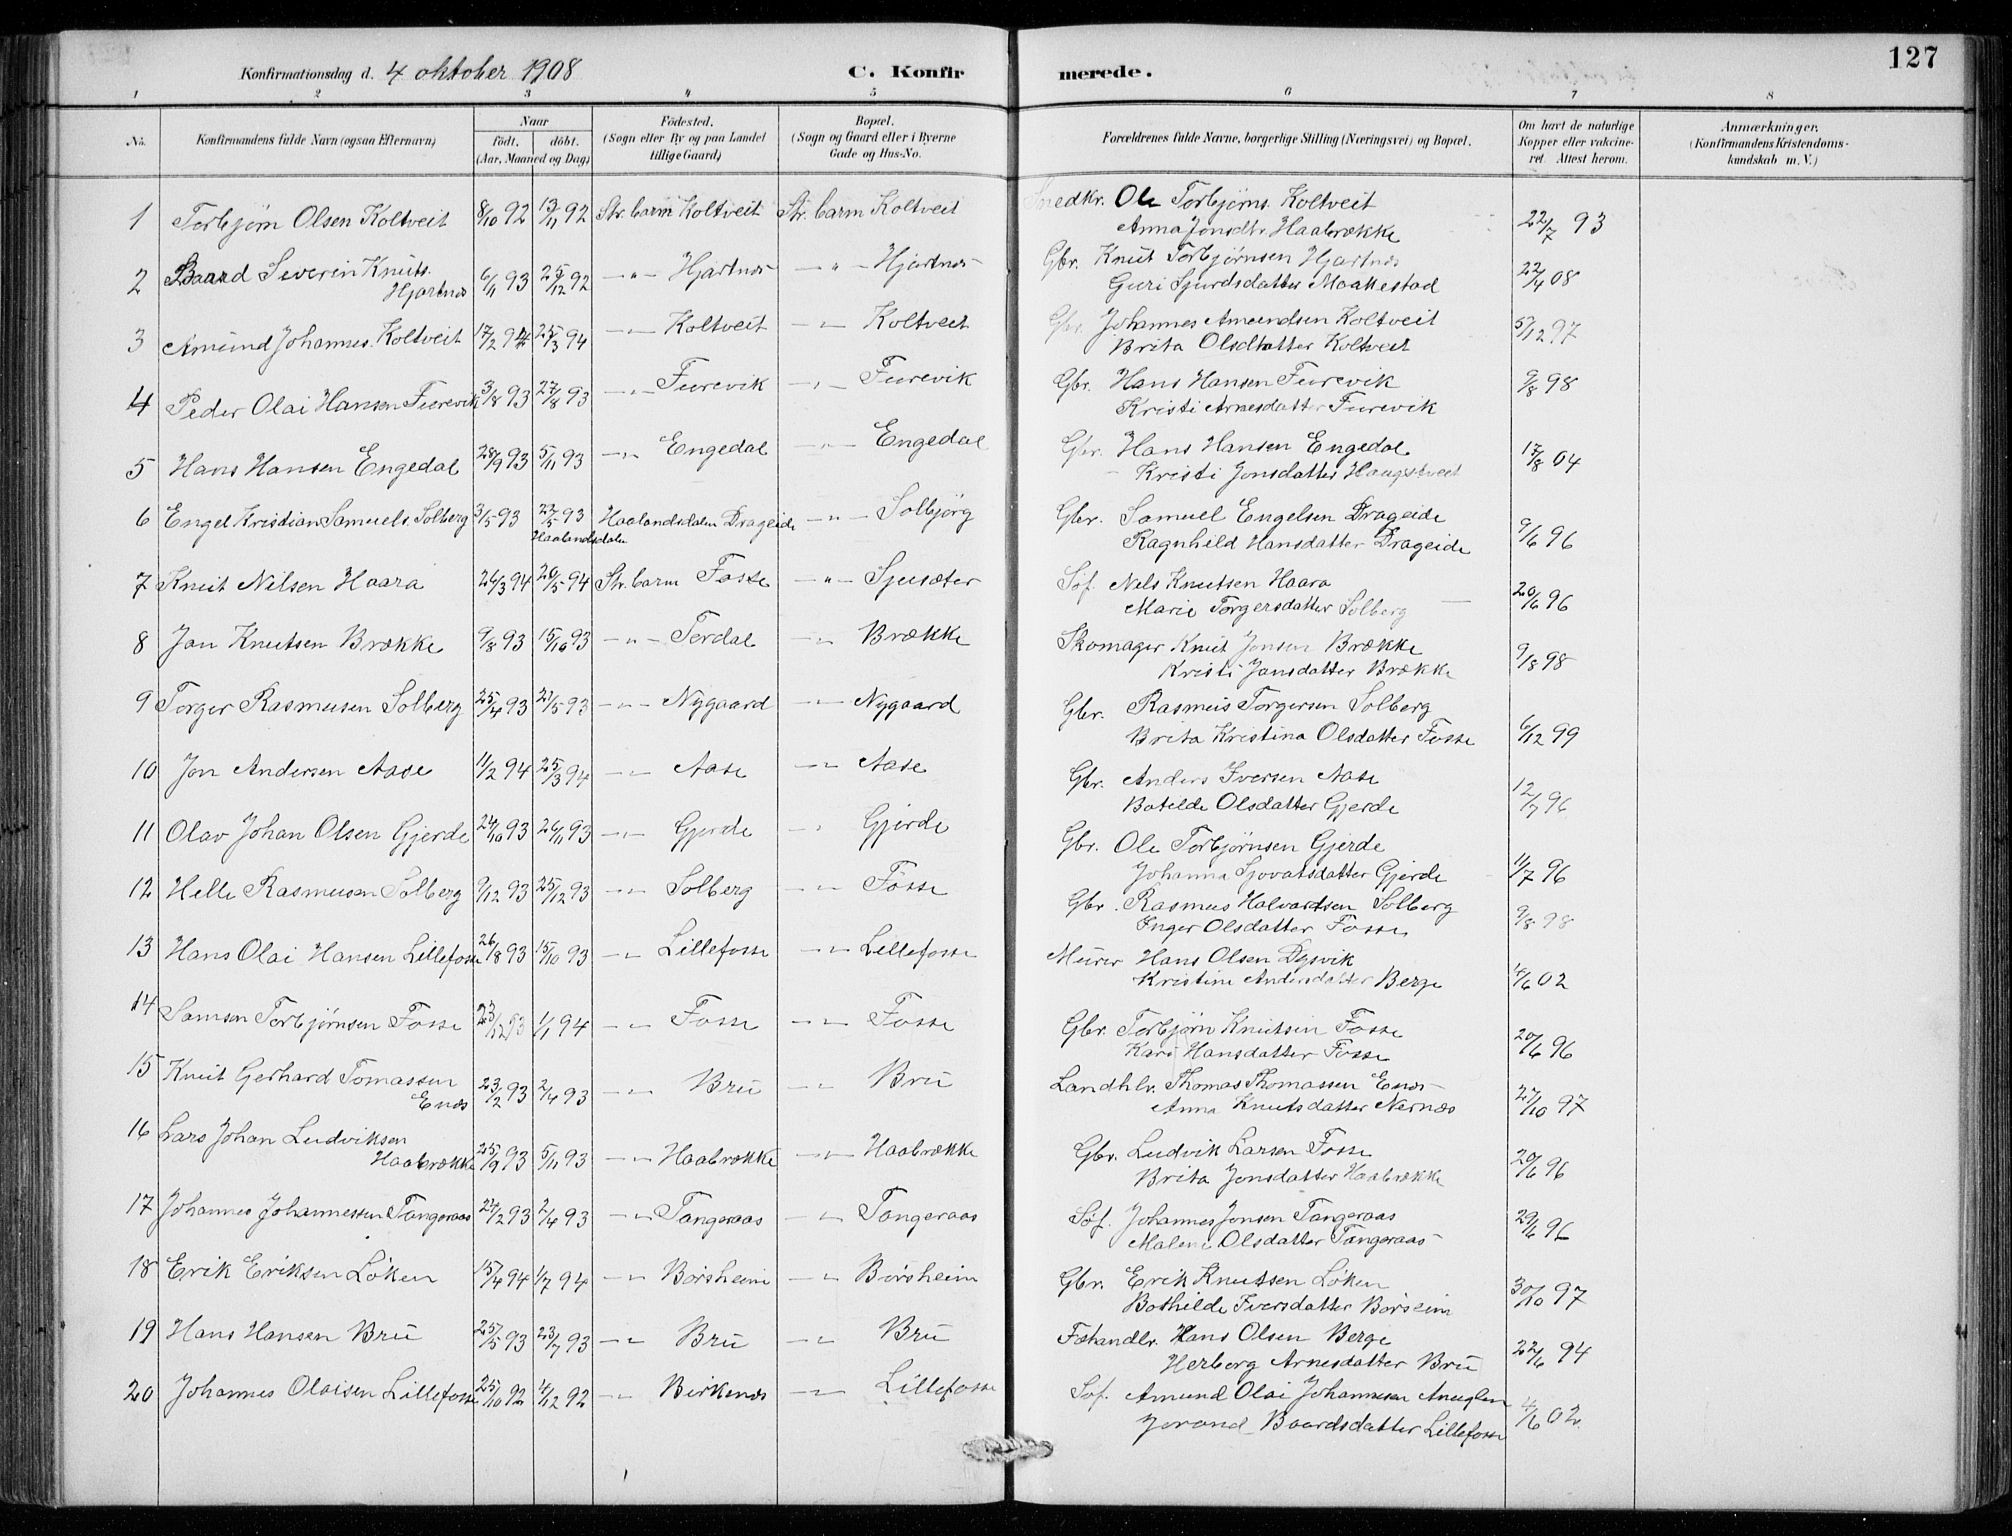 127
Konfirmationsdag d. 4 oktober 1908 C. Konfirmerede.
1 2 3 4 5 6 7 8
No. Konfirmandens fulde Navn (ogsaa Efternavn) Naar födt. döbt. (Aar, Maaned og Dag) Födested. (Sogn eller By og paa Landet tillige Gaard) Bopæl. (Sogn og Gaard eller i Byerne Gade og Hus-No. Forældrenes fulde Navne, borgerlige Stilling (Næringsvei) og Bopæl. Om havt de naturlige Kopper eller vakcineret. Attest herom. Anmærkninger. (Konfirmandens Kristendomskundskab m. V.)
1 Torbjørn Olsen Koltveit 8/10 92 13/11 92 Str. barm Koltveit Str. barm Koltveit Snedkr. Ole Torbjørns. Koltveit
Anna Jonsdtr. Haabrække 22/7 93
2 Baard Severin Knuts. Hjartnes 6/11 93 25/12 92 -"- Hjartnes -"- Hjartnes Gbr. Knut Torbjørnsen Hjartnes
Guri Sjurdsdatter Maakestad 22/4 08
3 Amund Johannes. Koltveit 17/2 94 25/3 94 -"- Koltveit -"- Koltveit Gbr. Johannes Amundsen Koltveit
Brita Olsdatter Koltveit 5/12 97
4 Peder Olai Hansen Furevik 3/8 93 27/8 93 -"- Furevik -"- Furevik Gbr. Hans Hansen Furevik
Kristi Arnesdatter Furevik 9/8 98
5 Hans Hansen Engedal 28/9 93 5/11 93 -"- Engedal -"- Engedal Gbr. Hans Hansen Engedal
Kristi Jonsdatter Haugstveit 17/8 04
6 Engel Kristian Samuels. Solberg 3/5 93 22/5 93 Haalandsdalen Haalandsdalen Drageide -"- Solbjörg Gbr. Samuel Engelsen Drageide
Ragnhild Hansdatter Drageide 9/6 96
7 Knut Nilsen Haara 26/3 94 20/5 94 Str. barm Fosse -"- Sjusæter Söf. Nils Knutsen Haara
Marie Torgersdatter Solberg 20/6 96
8 Jan Knutsen Brække 9/8 93 15/10 93 -"- Terdal -"- Brække Skomager Knut Jonsen Brække
Kristi Jansdatter Brække 9/8 98
9 Torger Rasmusen Solberg 25/4 93 21/5 93 -"- Nygaard -"- Nygaard Gbr. Rasmus Torgersen Solberg
Brita Kristina Olsdatter Fosse 6/12 99
10 Jon Andersen Aase 11/2 94 25/3 94 -"- Aase -"- Aase Gbr. Anders Iversen Aase
Botilde Olsdatter Gjerde 12/7 96
11 Olav Johan Olsen Gjerde 24/10 93 26/11 93 -"- Gjerde " Gjerde Gbr. Ole Torbjørnsen Gjerde
Johanna Sjovatsdatter Gjerde 11/7 96
12 Helle Rasmusen Solberg 9/12 93 25/12 93 -"- Solberg -"- Fosse Gbr. Rasmus Halvardsen Solberg
Inger Olsdatter Fosse 9/8 98
13 Hans Olai Hansen Lillefosse 26/8 93 15/10 93 -"- Lillefosse -"- Lillefosse Murer Hans Olsen Dysvik
Kristine Andersdatter Berge 4/6 02
14 Samson Torbjørnsen Fosse 23/12 93 1/1 94 -"- Fosse -"- Fosse Gbr. Torbjørn Knutsen Fosse
Kari Hansdatter Fosse 20/6 96
15 Knut Gerhard Tomassen Enes 23/2 93 2/4 93 -"- Bru -"- Bru Landhlr. Thomas Thomassen Enes
Anna Knutsdatter Nernæs 27/10 97
16 Lars Johan Ludviksen Haabrække 25/9 93 5/11 93 -"- Haabrække -"- Haabrække Gbr. Ludvik Larsen Fosse
Brita Jonsdatter Haabrække 20/6 96
17 Johannes Johannessen Tangeraas 24/2 93 2/4 93 -"- Tangeraas -"- Tangeraas Söf. Johannes Jonsen Tangeraas
Malene Olsdatter Tangeraas 29/6 96
18 Erik Eriksen Löken 15/4 94 1/7 94 -"- Börsheim -"- Börsheim Gbr. Erik Knutsen Löken
Bothilde Iversdatter Börseim 30/10 97
19 Hans Hansen Bru 25/5 93 23/7 93 -"- Bru -"- Bru Fæhandlr. Hans Olsen Berge
Herborg Arnesdatter Bru 22/6 94
20 Johannes Olaisen Lillefosse 25/10 92 4/12 92 -"- Birkenes -"- Lillefosse Söf. Amund Olai Johannesen Anuglen
Jorand Baardsdatter Lillefosse 4/6 02